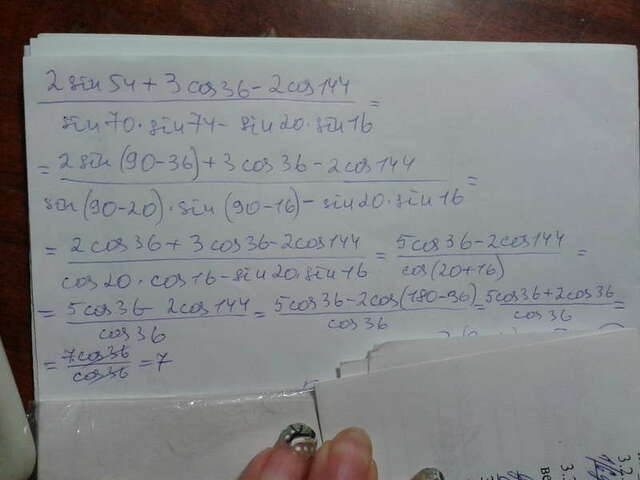 2 sin 54 + 3 cos 36 - 2 cos 144
sin 70 · sin 74 - sin 20 · sin 16 =
= 2 sin (90-36) + 3 cos 36 - 2 cos 144
sin (90-20) · sin (90-16) - sin 20 · sin 16 =
= 2 cos 36 + 3 cos 36 - 2 cos 144 = 5 cos 36 - 2 cos 144 =
cos 20 · cos 16 - sin 20 · sin 16 cos (20+16)
= 5 cos 36 - 2 cos 144 = 5 cos 36 - 2 cos (180-36) = 5 cos 36 + 2 cos 36 =
cos 36 cos 36 cos 36
= 7 cos 36 = 7
cos 36